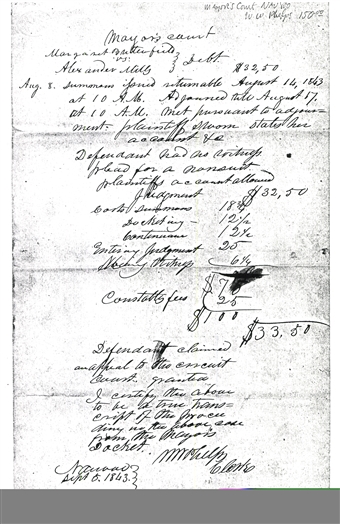 Mayor's Court Nauvoo
W.W. Phelps 150
Mayor's court
Margaret Butterfield
vs. } Debt
Alexander Mills $32,50
Aug. 8. summons issued returnable August 14, 1843
at 10 A.M. Adjourned till August 17,
at 10 A.M. Met pursuant to adjourn-
ment. plaintiff sworn states her
account &c
Defendant had no witness
plead for a nonsuit.
plaintiff's account allowed
Judgment $32,50
Costs summons 18¾
Docketing 12½
Continuance 12½
Entering Judgment 25
witness 6¼
$75
Constable fees 25
$100
$33,50
Defendant claimed
an appeal to the circuit
court. granted
I certify the above
to be a true trans-
cript of the procee
ding in the above case
from the Mayor's
Docket.
W W Phelps
Clerk
Nauvoo
Sept 5. 1843. }